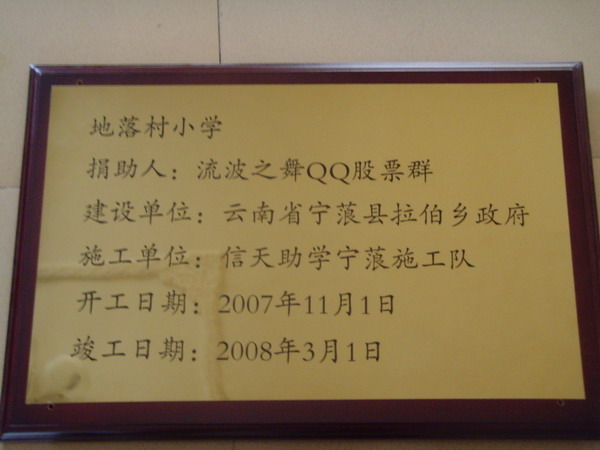 地落村小学
捐助人：流波之舞QQ股票群
建设单位：云南省宁蒗县拉伯乡政府
施工单位：信天助学宁蒗施工队
开工日期：2007年11月1日
竣工日期：2008年3月1日